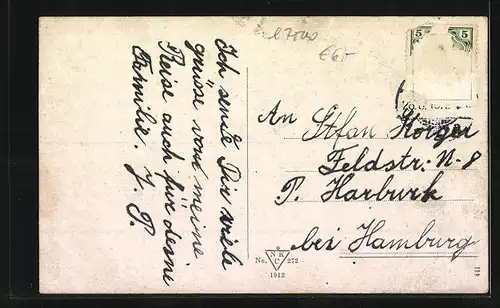 Ich sende Dir viele
grüsse von meine
Reise auch für deine
Familie. J. P.
An Stfan Korger
Feldstr. N-8
P. Harburk
bei Hamburg
5 5
€6,-
No. NKC 272
1912
441